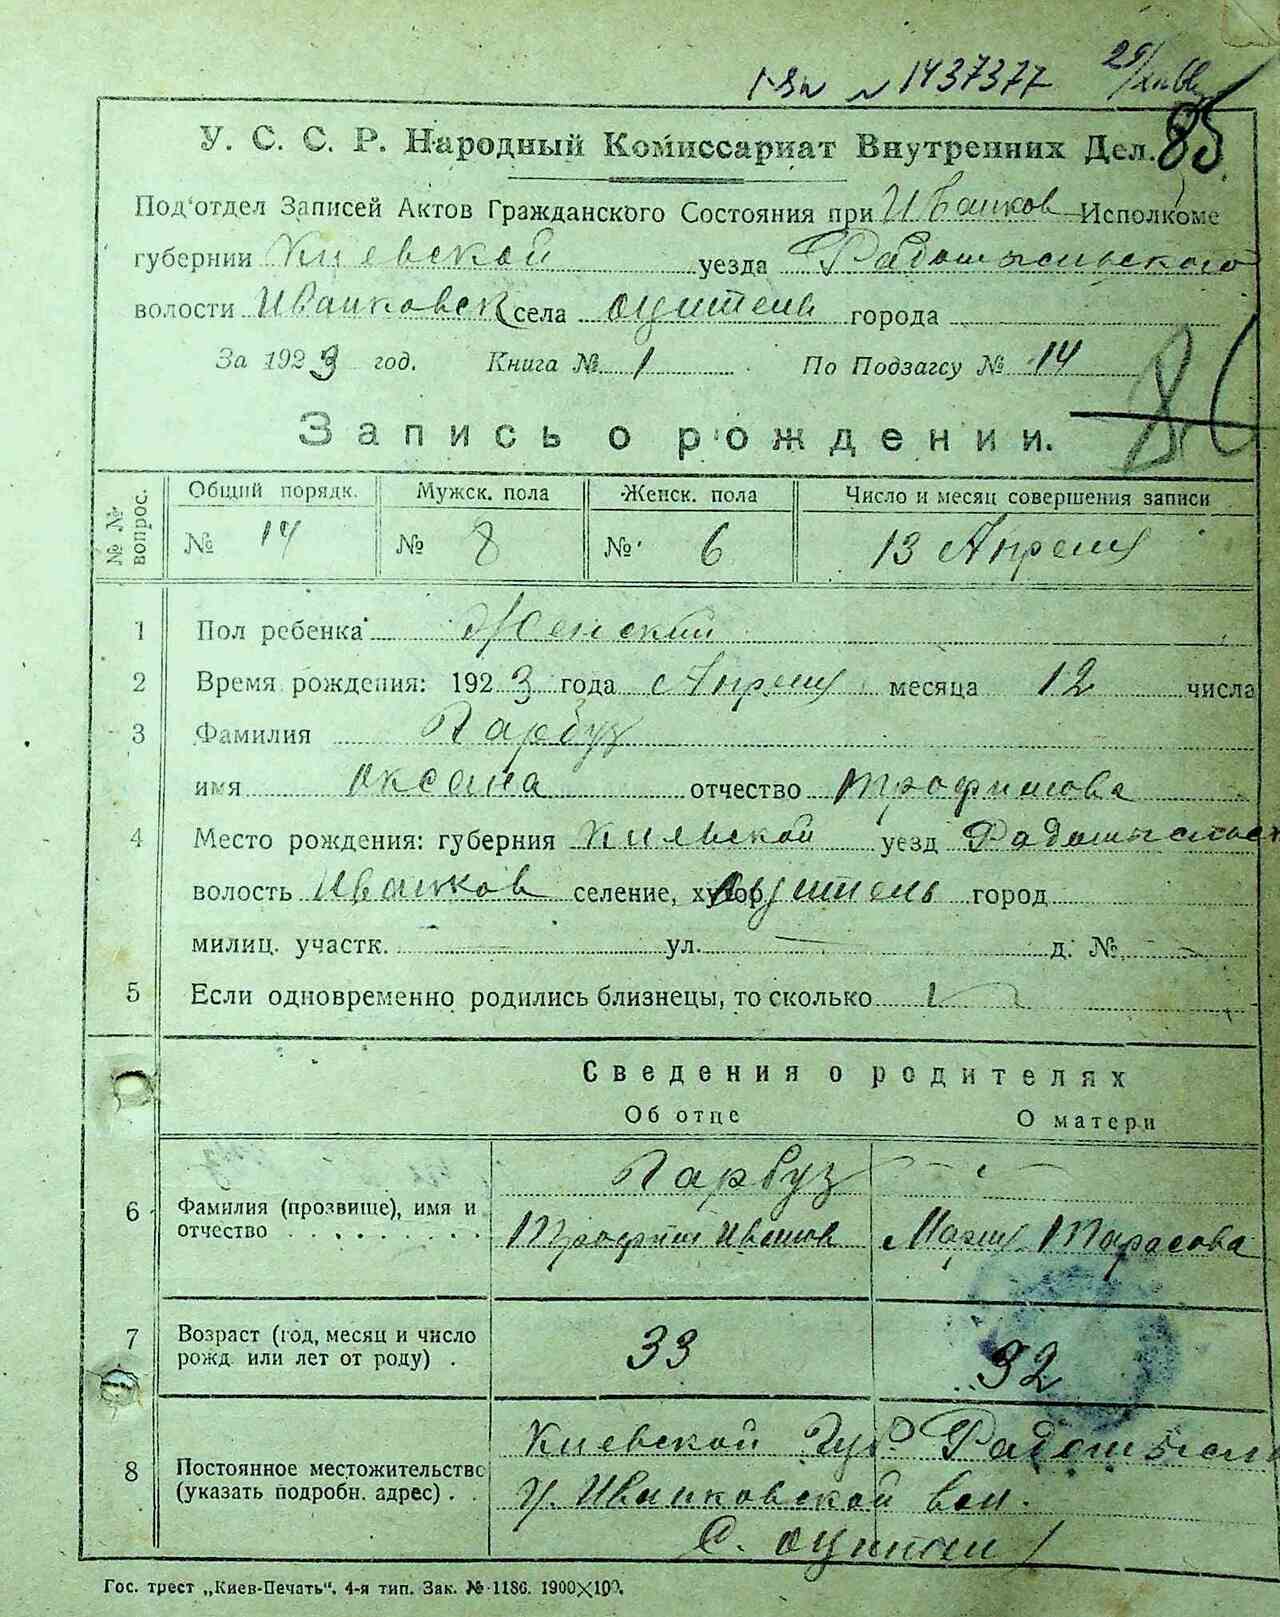 № 1437377 29/
85
У. С. С. Р. Народный Комиссариат Внутренних Дел.
Под'отдел Записей Актов Гражданского Состояния при Иванков Исполкоме
губернии Киевской уезда Радомысльского
волости Иванковск села Оцитель города
За 1923 год. Книга № 1 По Подзагсу № 14
Запись о рождении.
№ № вопрос. Общий порядк. Мужск. пола Женск. пола Число и месяц совершения записи
№ 14 № 8 № 6 13 Апреля
1 Пол ребенка Женский
2 Время рождения: 1923 года Апреля месяца 12 числа
3 Фамилия Гарбуз
имя Оксана отчество Трофимова
4 Место рождения: губерния Киевской уезд Радомысльск
волость Иванков селение, хутор Оцитель город
милиц. участк. ул. д. №
5 Если одновременно родились близнецы, то сколько 1
Сведения о родителях
Об отце О матери
6 Фамилия (прозвище), имя и отчество Гарбуз
Трофим Иванов Мария Тарасова
7 Возраст (год, месяц и число рожд. или лет от роду) . 33 32
8 Постоянное местожительство (указать подробн. адрес) . . Киевской Губ. Радомысл
у. Иванковской вол.
С. Оцители
Гос. трест „Киев-Печать“. 4-я тип. Зак. № 1186. 1900×100.